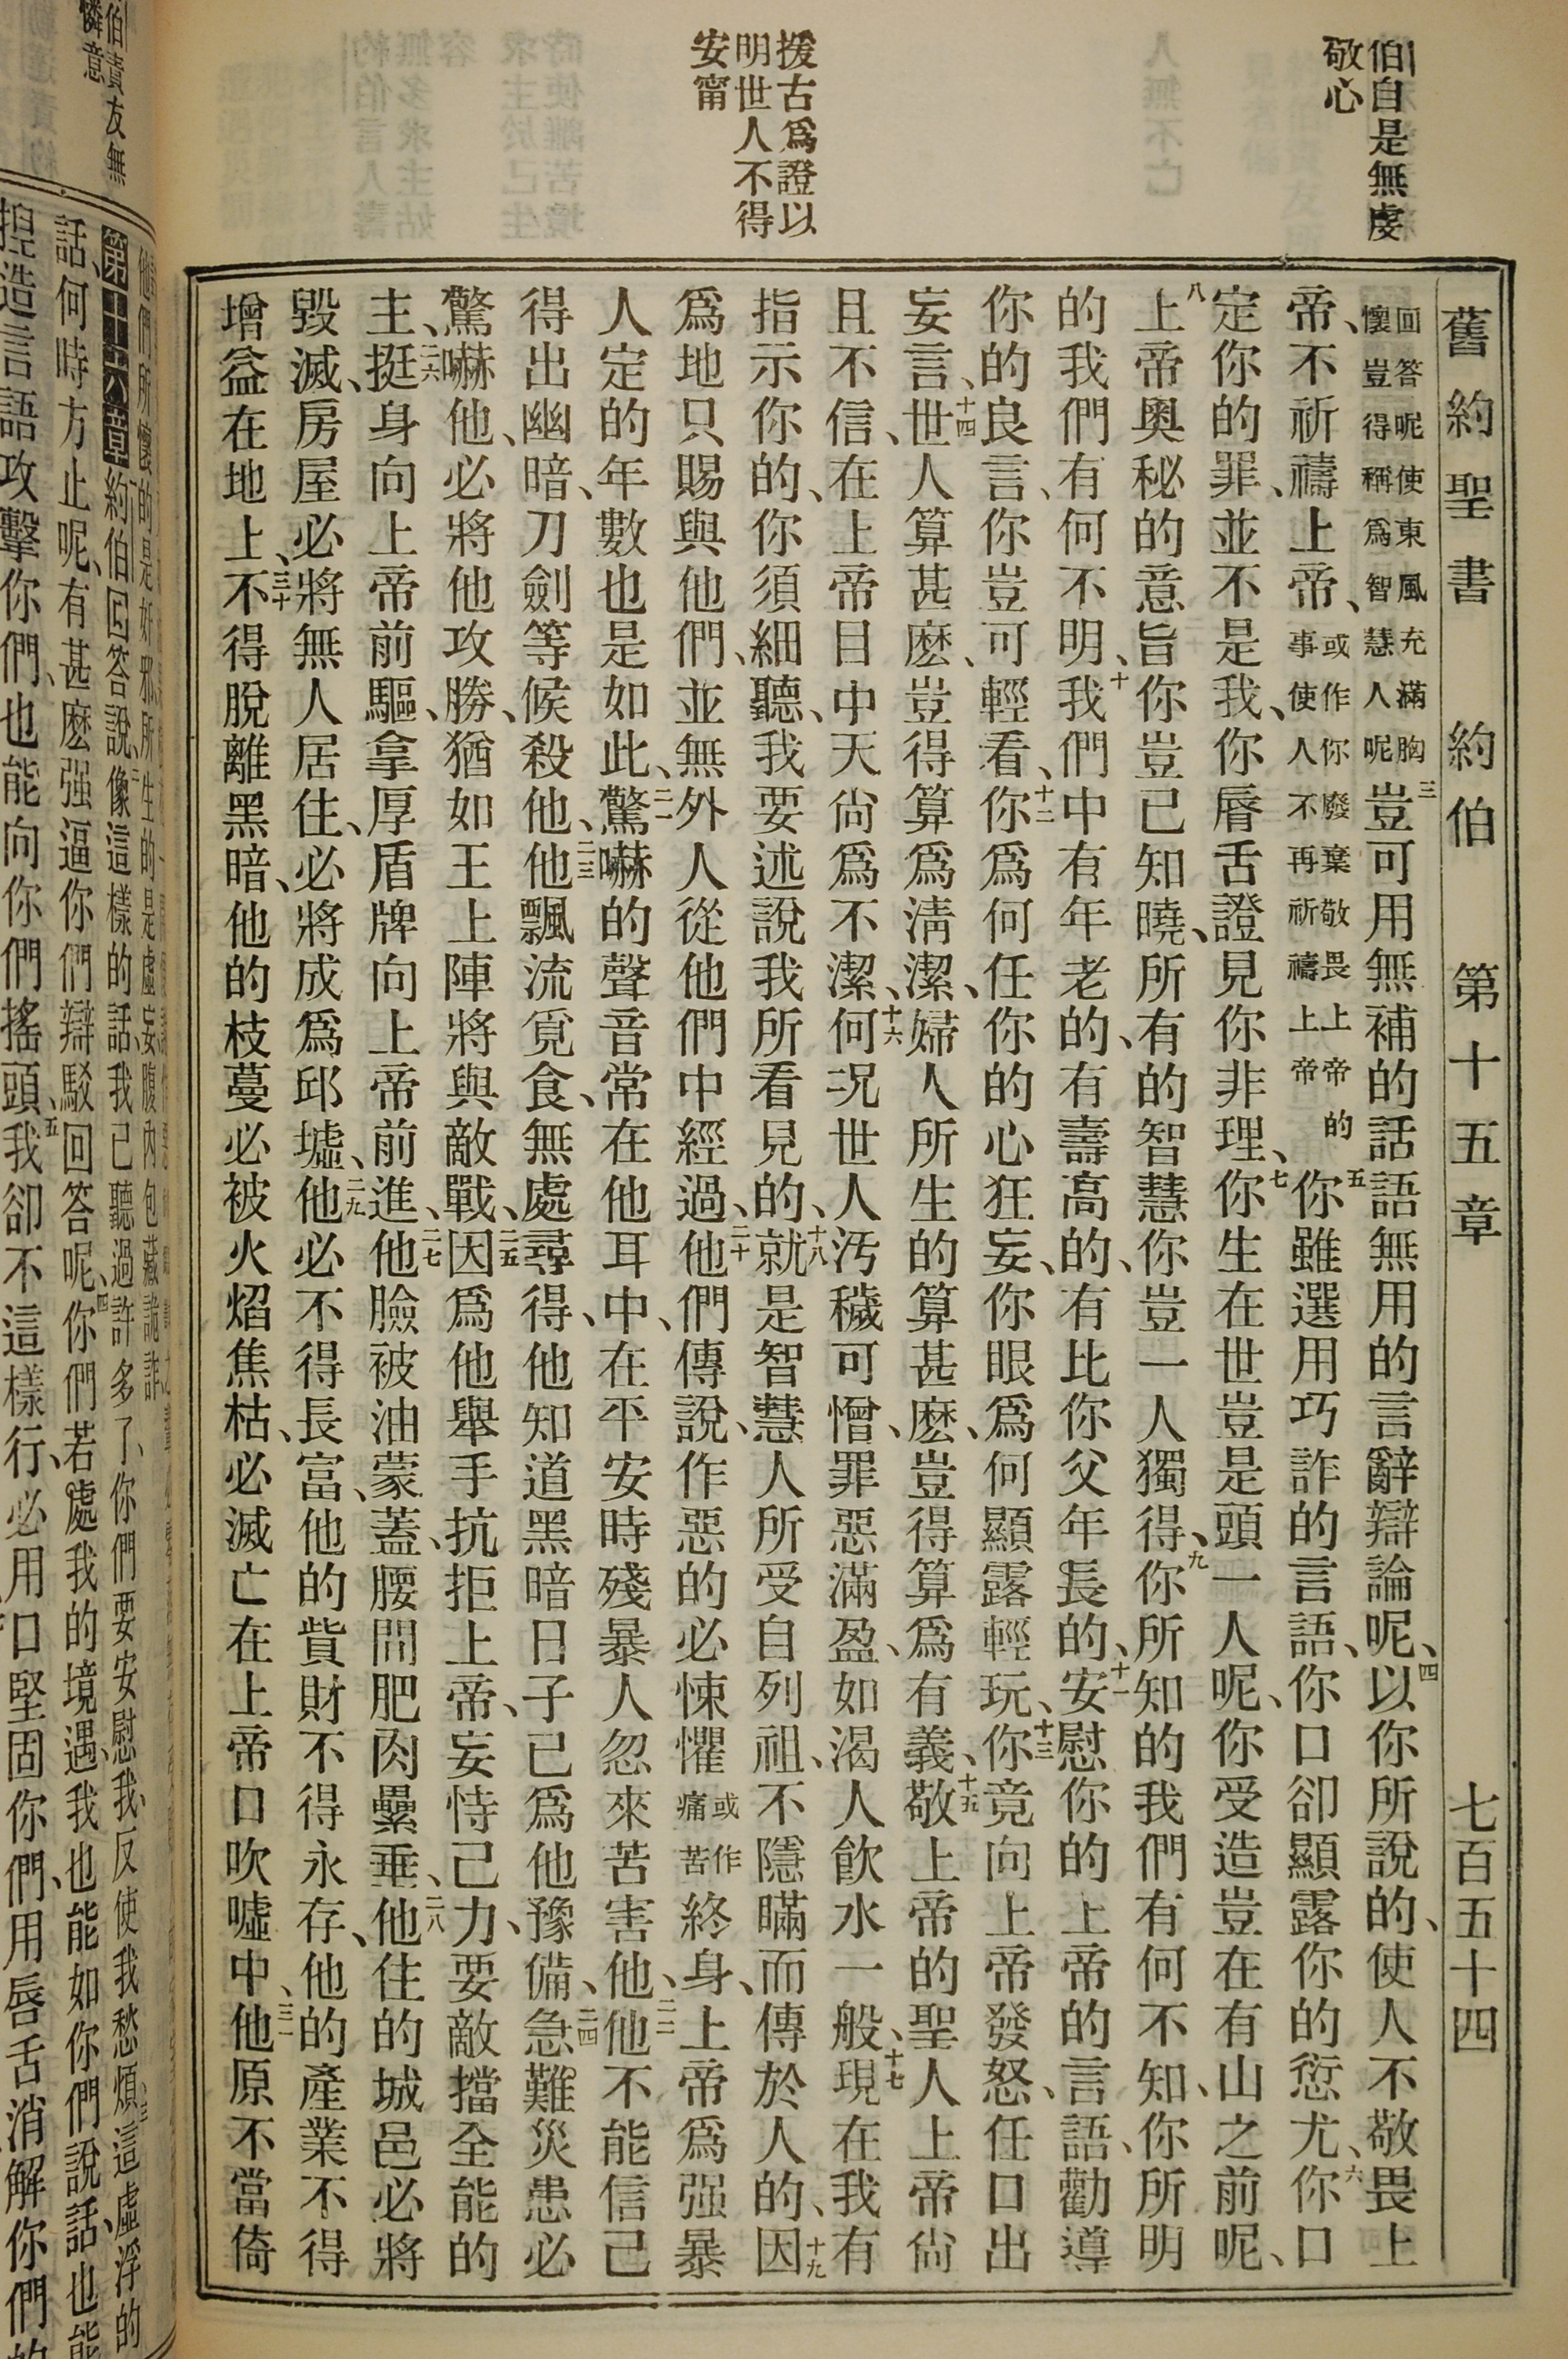 伯自是無虔
敬心
援古爲證以
明世人不得
安甯
舊約聖書 約伯 第十五章 七百五十四
回答呢使東風充滿胸
懷豈得稱爲智慧人呢
三豈可用無補的話語無用的言辭辯論呢、四以你所說的、使人不敬畏上
帝、不祈禱上帝、或作你廢棄敬畏上帝的事使人不再祈禱上帝五你雖選用巧詐的言語、你口卻顯露你的愆尤、六你口
定你的罪、並不是我、你脣舌證見你非理、七你生在世豈是頭一人呢、你受造豈在有山之前呢、
八上帝奧秘的意旨你豈已知曉、所有的智慧你豈一人獨得、九你所知的我們有何不知、你所明
的我們有何不明、十我們中有年老的、有壽高的、有比你父年長的、十一安慰你的上帝的言語、勸導
你的良言、你豈可輕看、十二你爲何任你的心狂妄、你眼爲何顯露輕玩、十三你竟向上帝發怒、任口出
妄言、十四世人算甚麽、豈得算爲淸潔、婦人所生的算甚麽、豈得算爲有義、十五敬上帝的聖人上帝尙
且不信、在上帝目中天尙爲不潔、十六何況世人汚穢可憎、罪惡滿盈、如渴人飮水一般、十七現在我有
指示你的、你須細聽、我要述說我所看見的、十八就是智慧人所受自列祖、不隱瞞而傳於人的、十九因
爲地只賜與他們、並無外人從他們中經過、二十他們傳說、作惡的必悚懼或作痛苦終身、上帝爲强暴
人定的年數也是如此、二一驚嚇的聲音常在他耳中、在平安時殘暴人忽來苦害他、二二他不能信己
得出幽暗、刀劍等候殺他、二三他飄流覓食、無處尋得、他知道黑暗日子已爲他豫備、二四急難災患必
驚嚇他、必將他攻勝、猶如王上陣將與敵戰、二五因爲他舉手抗拒上帝、妄恃己力、要敵擋全能的
主、二六挺身向上帝前驅、拿厚盾牌向上帝前進、二七他臉被油蒙蓋、腰間肥肉纍垂、二八他住的城邑必將
毀滅、房屋必將無人居住、必將成爲邱墟、二九他必不得長富、他的貲財不得永存、他的產業不得
增益在地上、三十不得脫離黑暗、他的枝蔓必被火焰焦枯、必滅亡在上帝口吹噓中、三一他原不當倚
伯責友無
憐意
他們所懷的是奸邪、所生的是虛妄、腹內包藏詭詐
第十六章約伯回答說、二像這樣的話、我已聽過許多了、你們要安慰我、反使我愁煩、三這虛浮的
話、何時方止呢、有甚麽强逼你們辯駁回答呢、四你們若處我的境遇、我也能如你們說話、也能
捏造言語攻擊你們、也能向你們搖頭、五我卻不這樣行、必用口堅固你們、用唇舌消解你們的